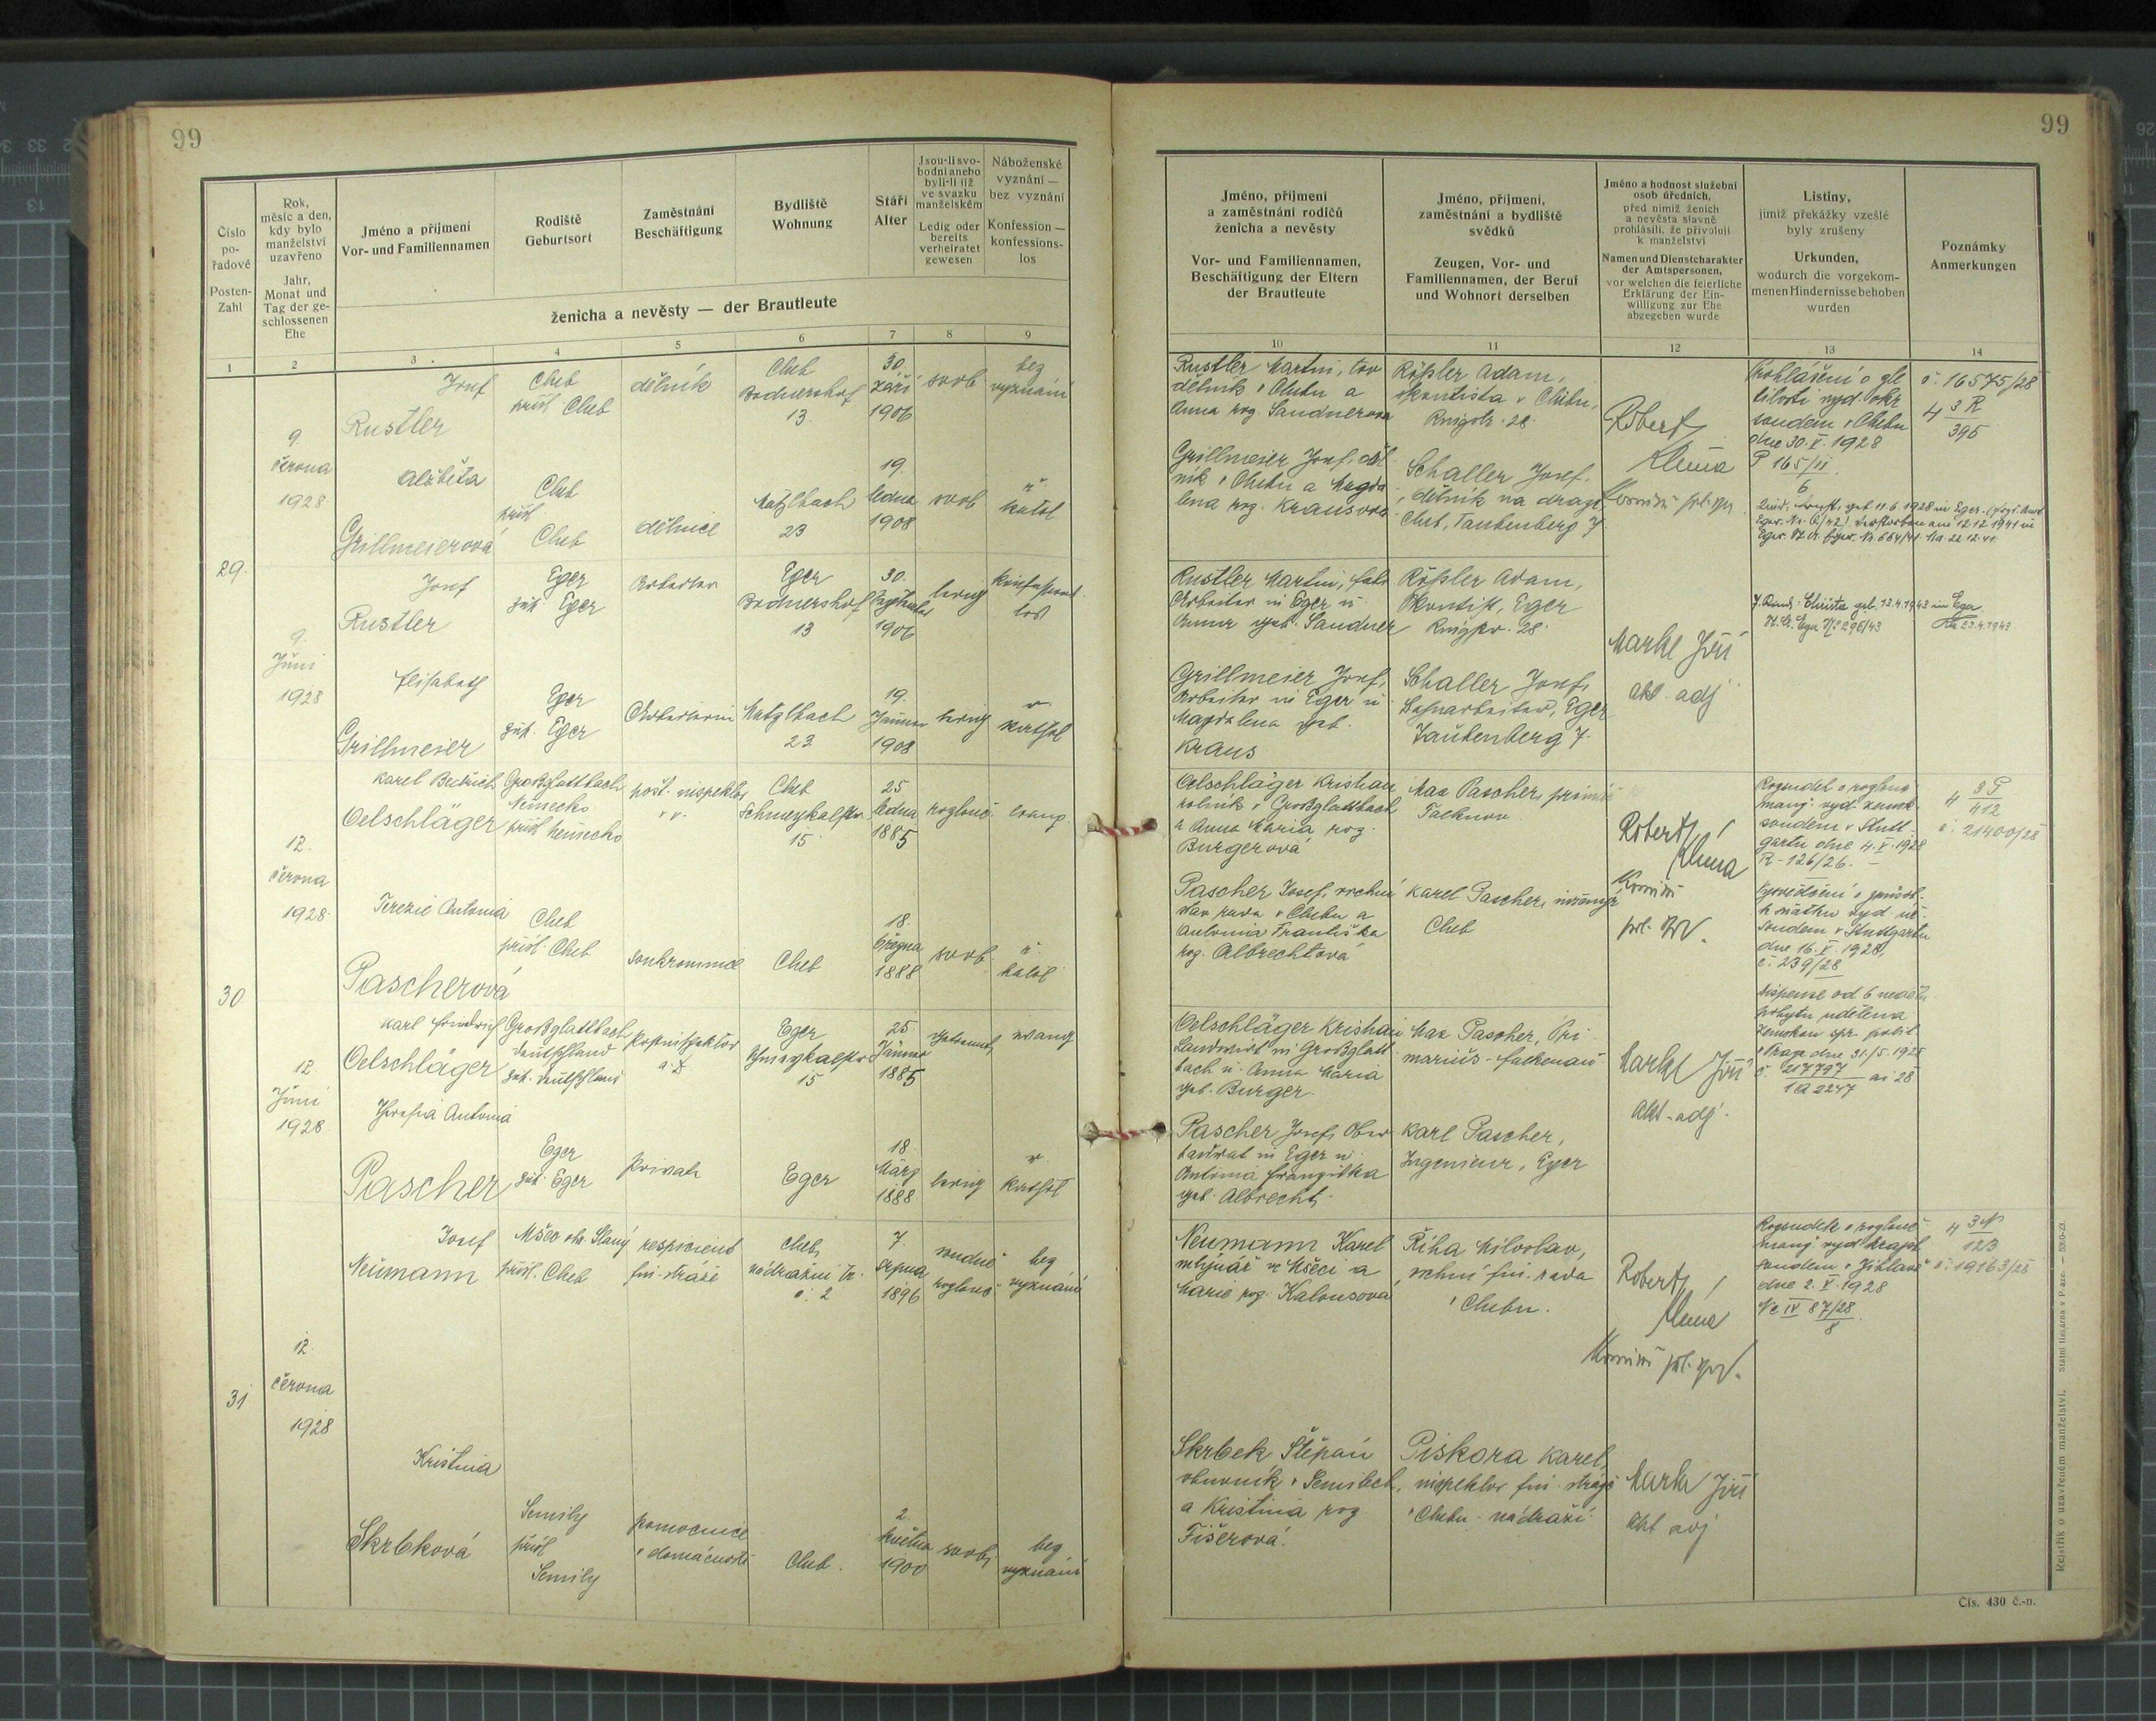 99
99
Číslo
po-
řadové
Posten-
Zahl
Rok,
měsíc a den,
kdy bylo
manželství
uzavřeno
Jahr,
Monat und
Tag der ge-
schlossenen
Ehe
Jméno a příjmení
Vor- und Familiennamen
Rodiště
Geburtsort
Zaměstnání
Beschäftigung
Bydliště
Wohnung
Stáří
Alter
Jsou-li svo-
bodni anebo
byli-li již
ve svazku
manželském
Ledig oder
bereits
verheiratet
gewesen
Náboženské
vyznání —
bez vyznání
Konfession —
konfessions-
los
ženicha a nevěsty — der Brautleute
1
2
3
4
5
6
7
8
9
29.
9.
června
1928
Josef
Rustler
Cheb
přísl. Cheb
dělník
Cheb
Bodnershof
13
30.
září
1906
svob
bez
vyznání
Alžběta
Grillmeierová
Cheb
přísl.
Cheb
dělnice
Matzlbach
23
19.
ledna
1908
svob
ř.
katol
9.
Juni
1928
Josef
Rustler
Eger
zust. Eger
Arbeiter
Eger
Bodnershof
13
30.
September
1906
ledig
Konfessions
los
Elisabeth
Grillmeier
Eger
zust. Eger
Arbeiterin
Matzlbach
23
19.
Jänner
1908
ledig
r.
kathol
30
12.
června
1928
Karel Bedřich
Oelschläger
Großglattbach
Německo
přísl Německo
pošt. inspektor
v.v.
Cheb
Schmeykalstr.
15
25
ledna
1885
rozlouč.
evang.
Terezie Antonia
Pascherová
Cheb
přísl. Cheb
soukromnice
Cheb
18.
března
1888
svob.
ř.
katol
12
Juni
1928
Karl Friedrich
Oelschläger
Großglattbach
Deutschland
zust. Deutschland
Postinspektor
a.D.
Eger
Schmeykalstr.
15
25
Jänner
1885
getrennt
evang
Theresia Antonia
Pascher
Eger
zust. Eger
Private
Eger
18.
März
1888
ledig
r.
kathol
31
12.
června
1928
Josef
Neumann
Mšec okr. Slaný
přísl. Cheb
respicient
fin. stráže
Cheb,
nádražní tř.
č. 2
7.
srpna
1896
soudně
rozlouč
bez
vyznání
Kristina
Skrbková
Semily
přísl
Semily
pomocnice
v domácnosti
Cheb.
2.
května
1900
svob,
bez
vyznání
Jméno, příjmení
a zaměstnání rodičů
ženicha a nevěsty
Vor- und Familiennamen,
Beschäftigung der Eltern
der Brautleute
Jméno, příjmení,
zaměstnání a bydliště
svědků
Zeugen, Vor- und
Familiennamen, der Beruf
und Wohnort derselben
Jméno a hodnost služební
osob úředních,
před nimiž ženich
a nevěsta slavně
prohlásili, že přivolují
k manželství
Namen und Dienstcharakter
der Amtspersonen,
vor welchen die feierliche
Erklärung der Ein-
willigung zur Ehe
abgegeben wurde
Listiny,
jimiž překážky vzešlé
byly zrušeny
Urkunden,
wodurch die vorgekom-
menen Hindernisse behoben
wurden
Poznámky
Anmerkungen
10
11
12
13
14
Rustler Martin, tov
dělník v Chebu a
Anna roz. Sandnerova
Rößler Adam,
skontista v Chebu,
28.
Robert
Klema
Prohlášení o
vyd okr
soudem v Chebu
dne 30. V. 1928
P 165/II
6
č. 16575/28
4 3 R
395
Grillmeier Josef, děl
ník v Chebu a Magda
lena roz. Krausova
Schaller Josef.
dělník na dráze
Cheb, Taubenberg 7
geb 11.6.1928 in Eger.
verstorben am 12 12 1941 in
Eger.
Rustler Martin, Fabr
Arbeiter in Eger u
Anna geb. Sandner
Rößler Adam,
Skontist, Eger
28.
Markl Jiří
akt. adj
Christa geb. 13.4.1943 in Eger
296/43
23.4.1943
Grillmeier Josef,
Arbeiter in Eger u
Magdalena geb.
Kraus
Schaller Josef,
Bahnarbeiter, Eger
Taubenberg 7.
Oelschläger Kristian
rolník v Großglattbach
a Anna Maria roz.
Burgerová
Max Pascher, primář
Falknov
Robert
Klema
Rozsudek o rozlouč
manž. vyd. zemsk
soudem v Stutt
gartu dne 4. V. 1928
R-126/26. –
4 8 P
412
č. 21400/28
Pascher Josef, vrchní
stav rada v Chebu a
Antonia Františka
roz. Albrechtová
Karel Pascher, inženýr
Cheb
Vysvědčení o způsob.
k sňatku vyd.
soudem v Stuttgartu
dne 16. V. 1928,
č. 239/28
Dispense od 6 neděl
pobytu udělena
zemskou spr. polit
v Praze dne 31/5. 1928
č. 217797 ai 28
1a 2247
Oelschläger Kristian
Landwirt in Großglatt
bach u. Anna Maria
geb. Burger.
Max Pascher, Pri
marius - Falkenau
Markl Jiří
Akt. adj.
Pascher Josef, Ober
baurat in Eger u.
Antonia Franziska
geb. Albrecht,
Karl Pascher,
Ingenieur, Eger
Neumann Karel
mlynář v Mšeci a
Marie roz. Kalousova
Říha Miloslav,
vrchní fin. rada
v Chebu.
Robert
Klema
Rozsudek o rozlouč
manž. vyd krajsk.
soudem v Jihlavě
dne 2. V. 1928
Nc IV 87/28
8
4 3 N
123
č. 19163/28
Skrbek Štěpán
obuvník v Semilech,
a Kristina roz.
Fišerová.
Piskora Karel,
inspektor fin. stráže
v Chebu - nádraží
Markl Jiří
Akt adj
Rejstřík o uzavřeném manželství. Státní tiskárna v Praze.
Čís. 430 č.-n.